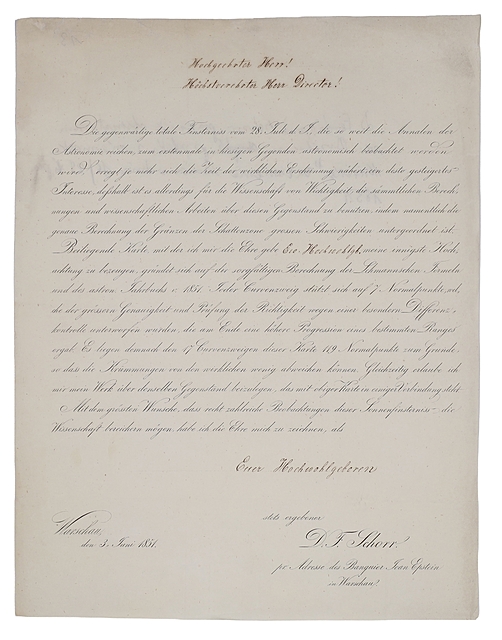 Hochgeehrter Herr!
Höchstverehrter Herr Director!
Die gegenwärtige totale Finsterniss vom 28. Juli d. J., die so weit die Annalen der
Astronomie reichen, zum erstenmale in hiesigen Gegenden astronomisch beobachtet werden
wird, erregt je mehr sich die Zeit der wirklichen Erscheinung nähert, ein desto gesteigertes
Interesse, desshalb ist es allerdings für die Wissenschaft von Wichtigkeit, die sämmtlichen Berech-
nungen und wissenschaftlichen Arbeiten über diesen Gegenstand zu benutzen, indem namentlich die
genaue Berechnung der Gränzen der Schattenzone grossen Schwierigkeiten untergeordnet ist.
Beiliegende Karte, mit der ich mir die Ehre gebe Ew. Hochwohlgb. meine innigste Hoch-
achtung zu bezeugen, gründet sich auf die sorgfältigen Berechnung der Lehmannschen Formeln
und des astron. Jahrbuchs v. 1851. Jeder Curvenzweig stützt sich auf 7 Normalpunkte, wel-
che der grössern Genauigkeit und Prüfung der Richtigkeit wegen einer besondern Differenz-
kontrolle unterworfen wurden, die am Ende eine höhere Progression eines bestimmten Ranges
ergab. Es liegen demnach den 17 Curvenzweigen dieser Karte 119 Normalpunkte zum Grunde,
so dass die Krümmungen von den wirklichen wenig abweichen können. Gleichzeitig erlaube ich
mir mein Werk über denselben Gegenstand beizulegen, das mit obiger Karte in einiger Verbindung steht.
Mit dem grössten Wunsche, dass recht zahlreiche Beobachtungen dieser Sonnenfinsterniss die
Wissenschaft bereichern mögen, habe ich die Ehre mich zu zeichnen, als
Euer Hochwohlgeboren
stets ergebener
Warschau,
den 3. Juni 1851.
D. F. Schorr.
pr Adresse des Banquier Jean Epstein
in Warschau.